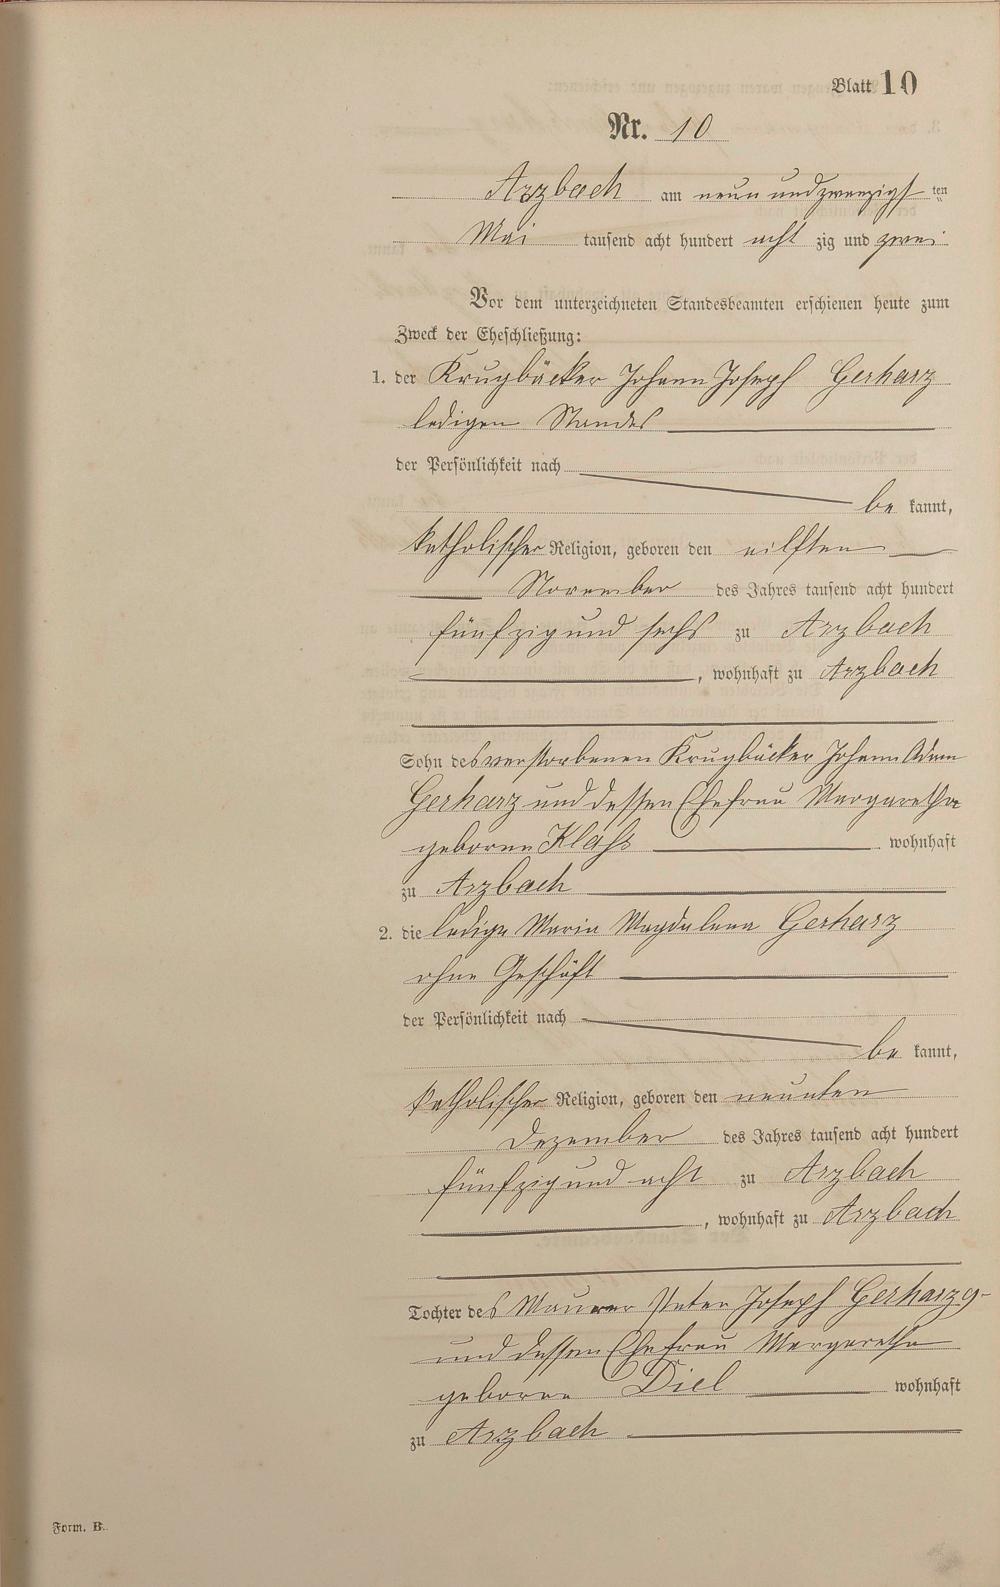 Blatt 10
Nr. 10
Arzbach am neun und zwanzigsten
Mai tausend acht hundert acht zig und zwei
Vor dem unterzeichneten Standesbeamten erschienen heute zum
Zweck der Eheschließung:
1. der Krugbäcker Johann Joseph Gerharz
ledigen Standes
der Persönlichkeit nach
be kannt,
katholischer Religion, geboren den eilften
November des Jahres tausend acht hundert
fünfzig und sechs zu Arzbach
, wohnhaft zu Arzbach
Sohn des verstorbenen Krugbäcker Johann Adam
Gerharz und dessen Ehefrau Margaretha
geborne Klöß wohnhaft
zu Arzbach
2. die ledige Maria Magdalena Gerharz
ohne Geschäft
der Persönlichkeit nach
be kannt,
katholischer Religion, geboren den neunten
Dezember des Jahres tausend acht hundert
fünfzig und acht zu Arzbach
, wohnhaft zu Arzbach
Tochter des Maurer Peter Joseph Gerharz
und dessen Ehefrau Margaretha
geborne Diel wohnhaft
zu Arzbach
Form. B.